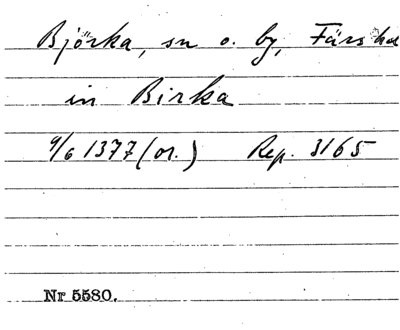 Björka, sn o. by, Färs hd
in Birka
9/6 1377 (or.) Rep. 3165
Nr 5580.